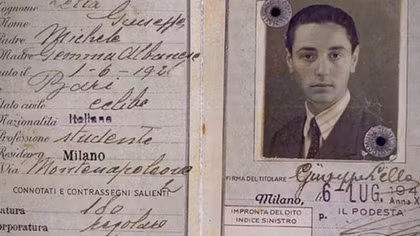 Cognome Zella
Nome Giuseppe
Padre Michele
Madre Gemma Albanese
nato il 1-6-192
a Bari
Stato civile celibe
Nazionalità Italiana
Professione studente
Residenza Milano
Via Montenapoleone
CONNOTATI E CONTRASSEGNI SALIENTI
Statura 180
Corporatura regolare
FIRMA DEL TITOLARE Giuseppe Zella
Milano, 6-LUG. 194 Anno X
IMPRONTA DEL DITO
INDICE SINISTRO
p. IL PODESTA